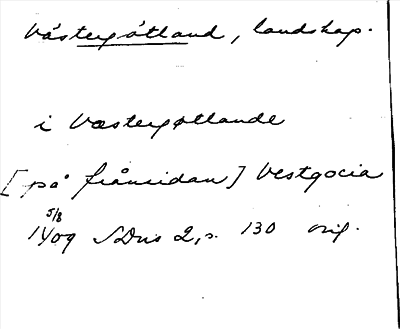 Västergötland, landskap.
i Væstergøtlande
[på frånsidan] Vestgocia
5/8
1409 SDns 2, s. 130 orig.